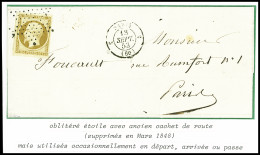 PARIS
13
SEPT.
53
(60)
Monsieur
Foucault rue Rumfort N° 1
Paris
oblitéré étoile avec ancien cachet de route
(supprimés en Mars 1846)
mais utilisés occasionnellement en départ, arrivée ou passe